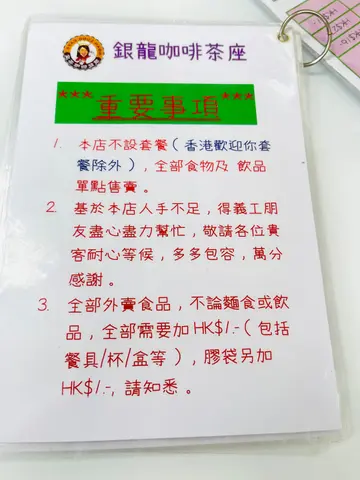 銀龍咖啡茶座
***重要事項***
1. 本店不設套餐(香港歡迎你套
餐除外),全部食物及 飲品
單點售賣。
2. 基於本店人手不足,得義工朋
友盡心盡力幫忙,敬請各位貴
客耐心等候,多多包容,萬分
感謝。
3. 全部外賣食品,不論麵食或飲
品,全部需要加HK$1.-(包括
餐具/杯/盒等),膠袋另加
HK$1.-, 請知悉。